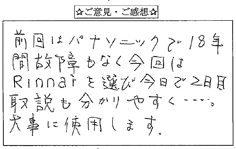 ☆ご意見・ご感想☆
前回はパナソニックで18年
間故障もなく今回は
Rinnaiを選び今日で2日目
取説も分かりやすく‥‥。
大事に使用します。